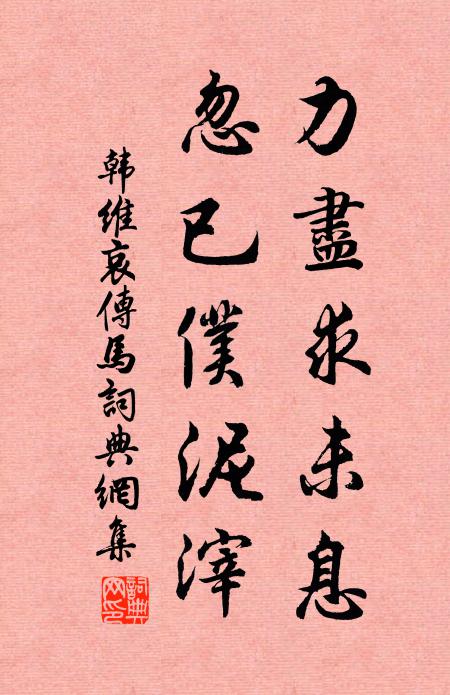 力盡求未息
忽已僕泥滓
韩維哀傳馬詞典網集
詞典網印